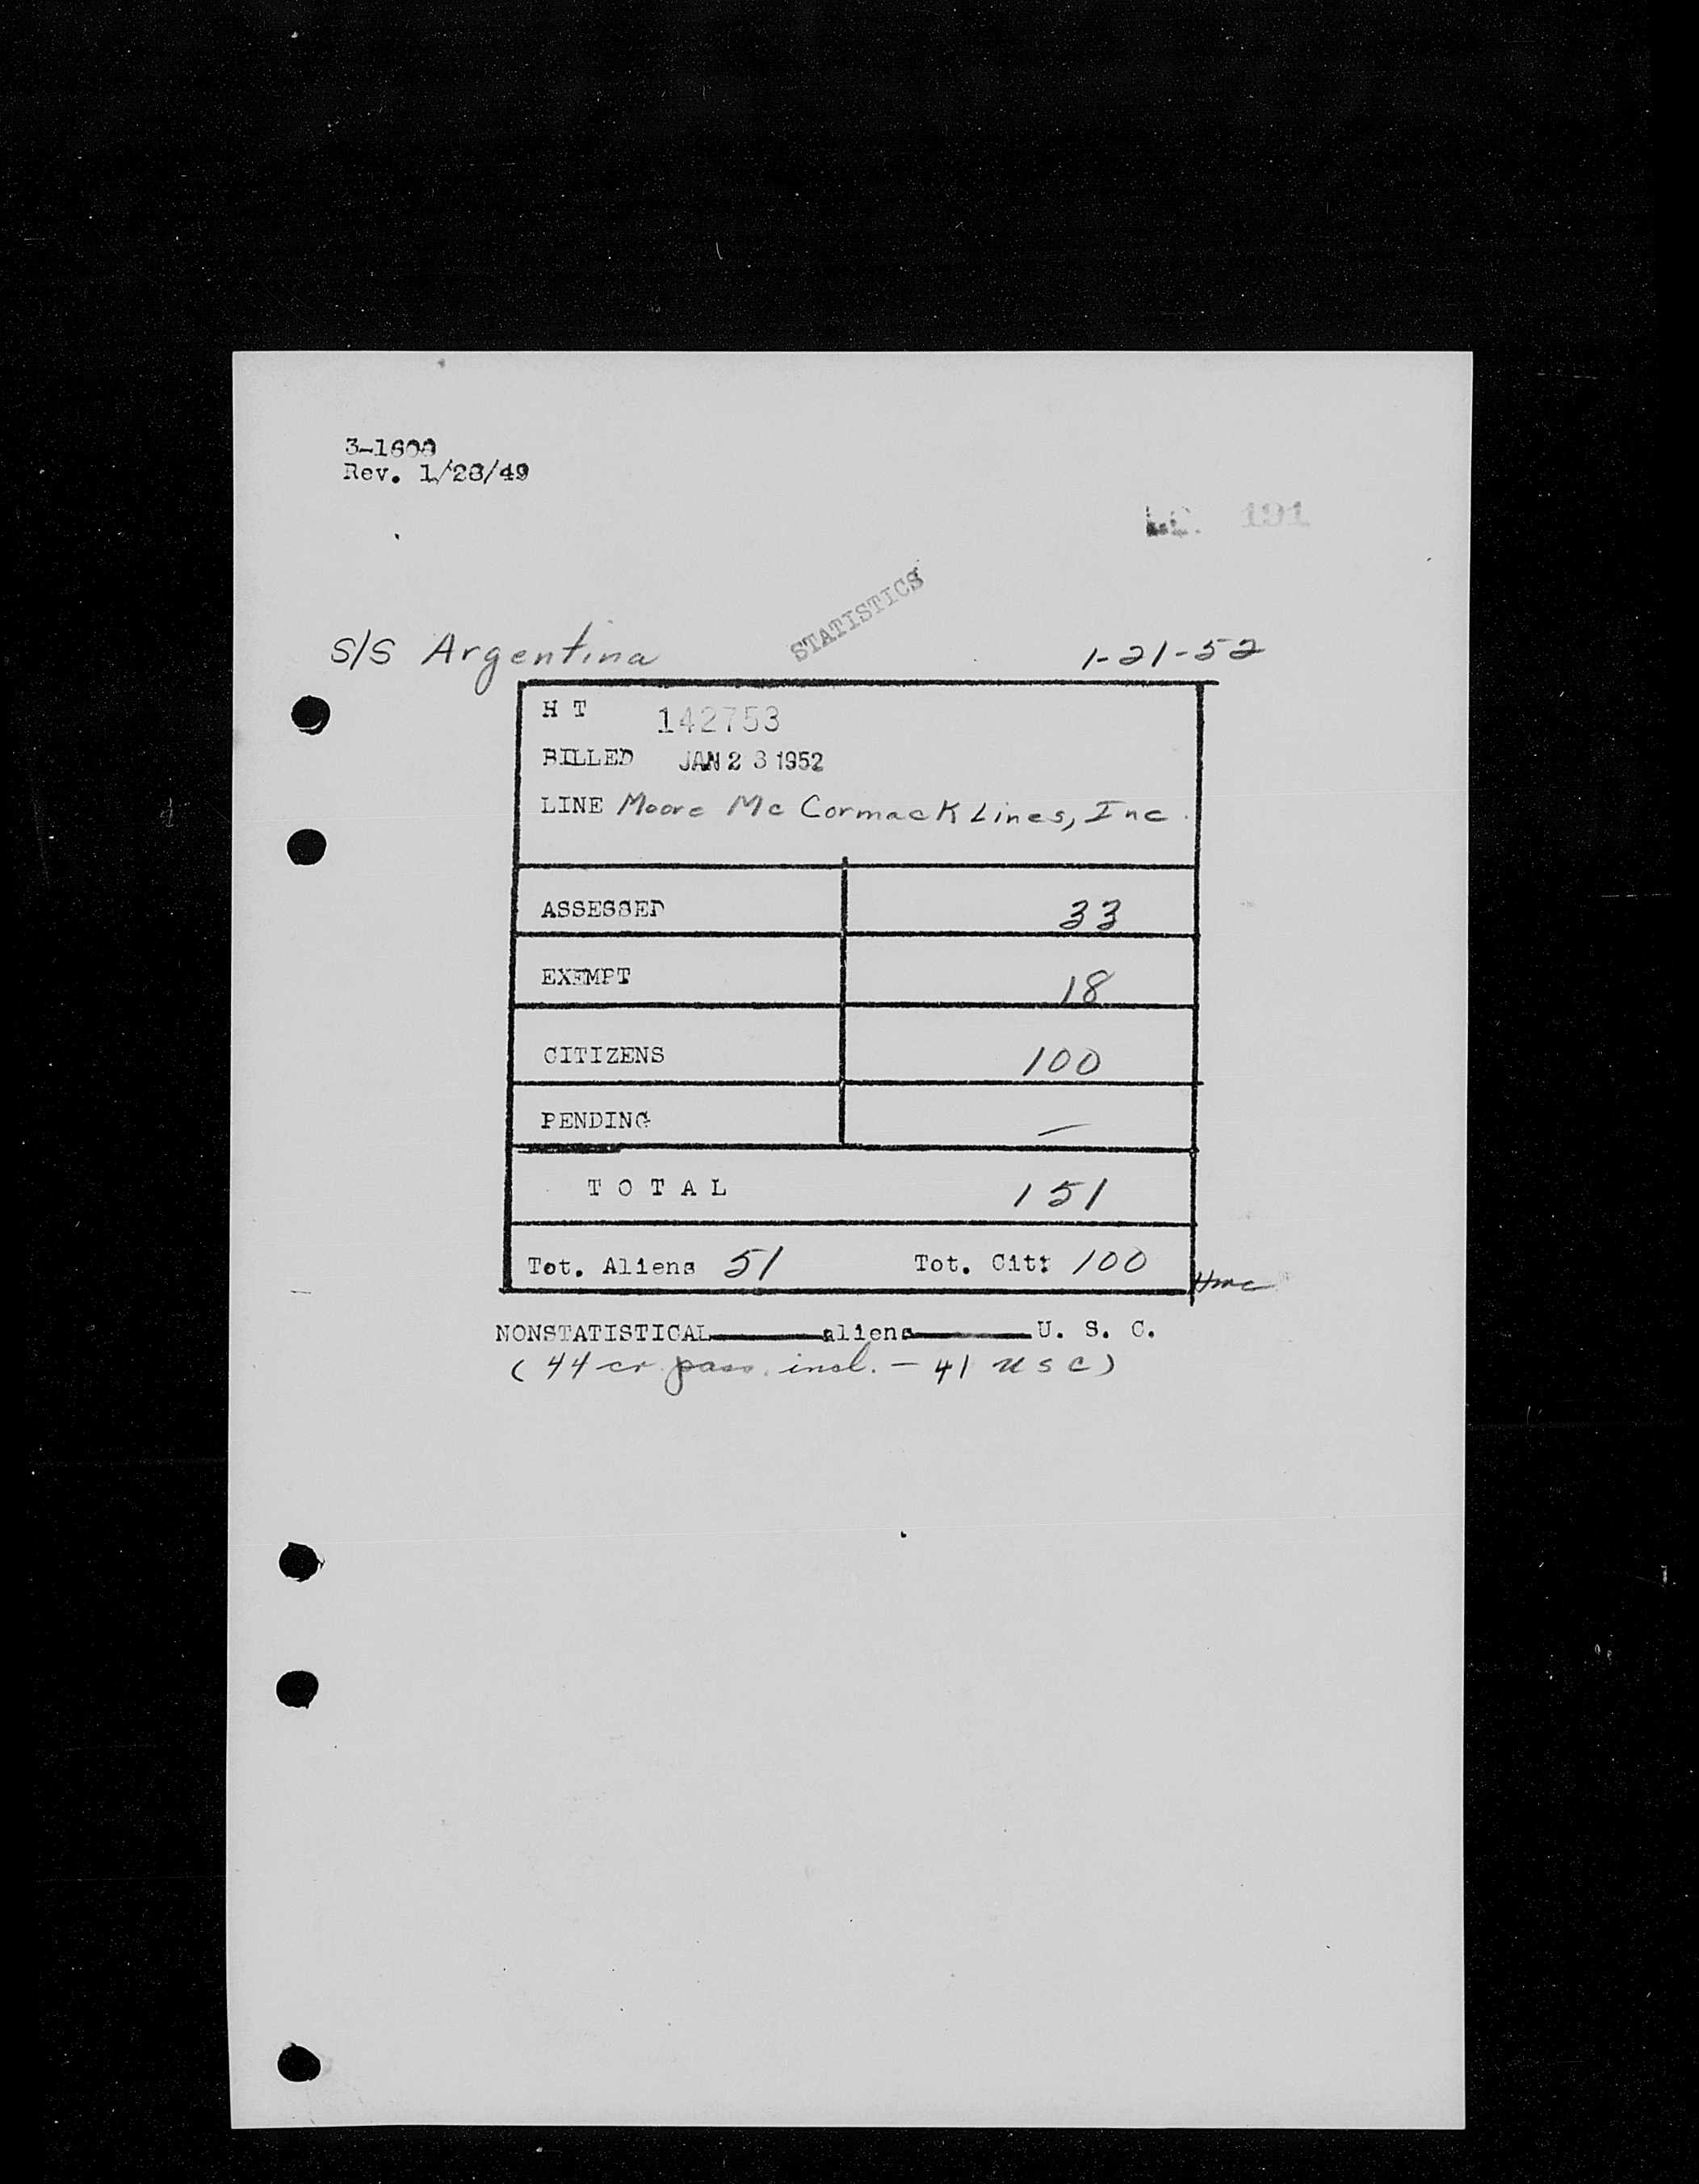 3-1600
Rev. 1/28/49
191
STATISTICS
S/S Argentina 1-21-52
H T 142753
BILLED JAN 23 1952
LINE Moore McCormack Lines, Inc.
ASSESSED 33
EXEMPT 18
CITIZENS 100
PENDING —
TOTAL 151
Tot. Aliens 51 Tot. Cit: 100
NONSTATISTICAL aliens U. S. C.
(44 cr pass. incl. — 41 USC)